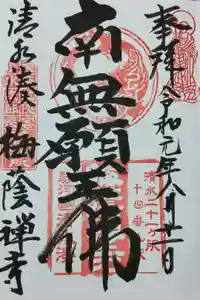 奉拝 令和元年八月十一日
南無願王佛
清水湊 梅蔭禅寺
清水二十一ヶ所
十四番